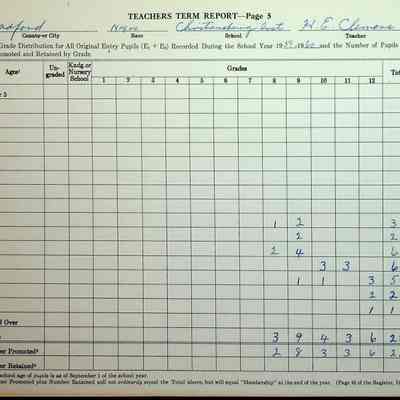 TEACHERS TERM REPORT—Page 5
adford Negro Christiansburg Inst W. E. Clemons
County or City Race School Teacher
Grade Distribution for All Original Entry Pupils (E₁ + E₂) Recorded During the School Year 1959-1960 and the Number of Pupils
omoted and Retained by Grade.
Ages¹ Un-graded Kndg. or Nursery School Grades Tot
1 2 3 4 5 6 7 8 9 10 11 12
r 5
1 2 3
2 2
2 4 6
3 3 6
1 1 3 5
2 2
1 1
d Over
3 9 4 3 6 2
er Promoted² 2 8 3 3 6 2
er Retained²
school age of pupils is as of September 1 of the school year.
er Promoted plus Number Retained will not ordinarily equal the Total above, but will equal "Membership" at the end of the year. (Page 6) of the Register,